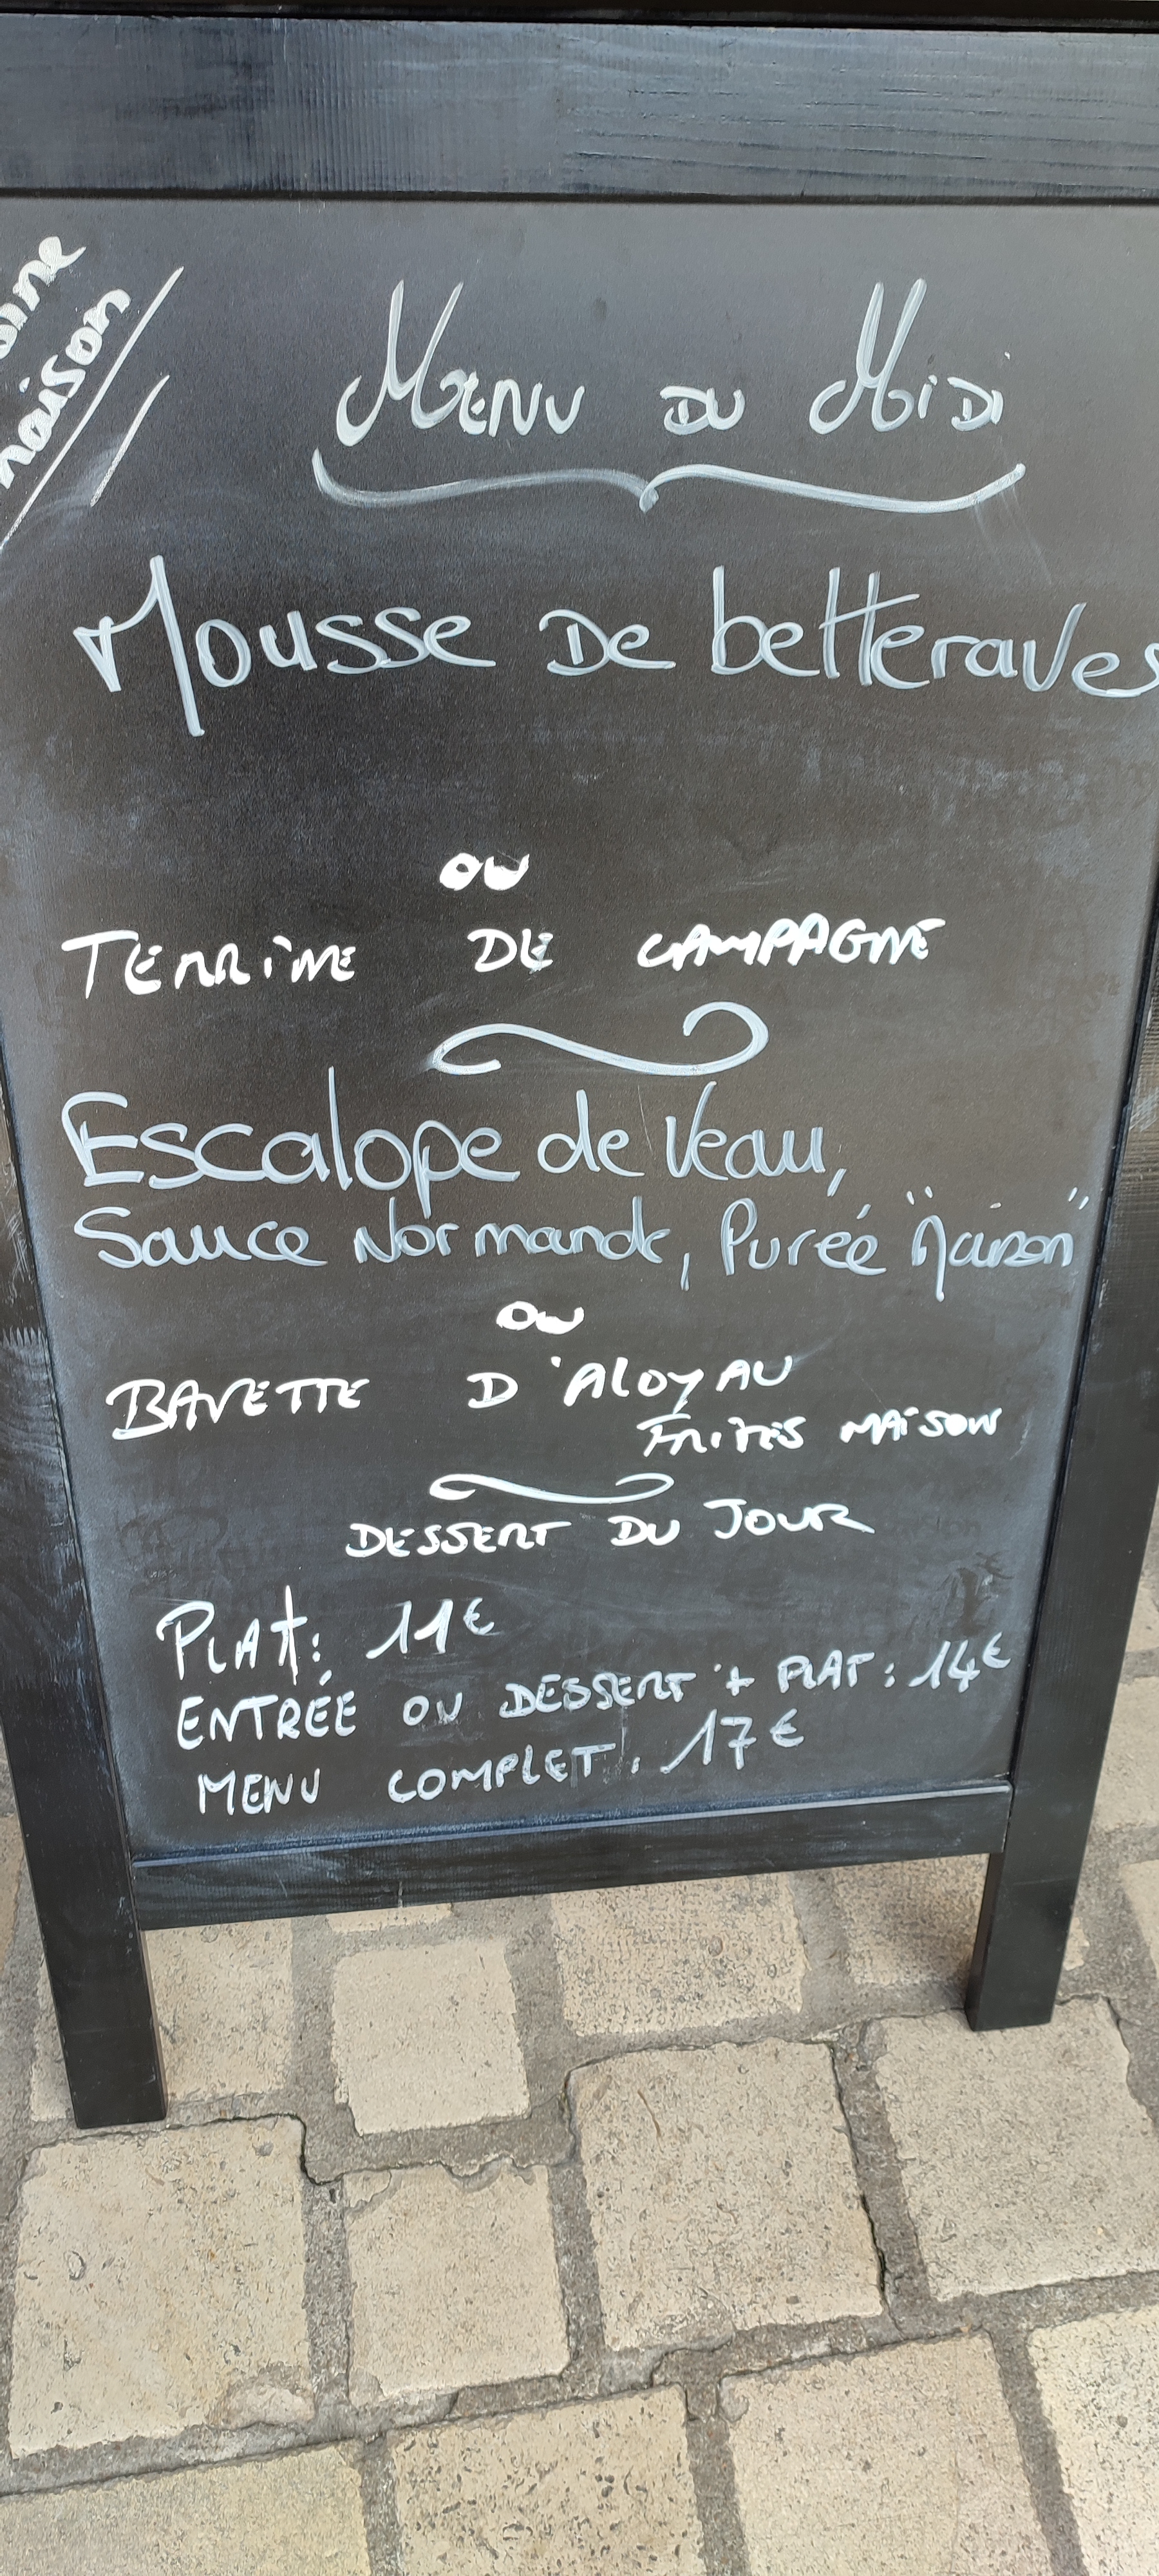 maison
Menu du Midi
Mousse De betteraves
ou
TERRINE DE CAMPAGNE
Escalope de Veau,
Sauce Normande, Purée "Maison"
ou
BAVETTE D'ALOYAU
FRITES MAISON
DESSERT DU JOUR
PLAT: 11€
ENTRÉE OU DESSERT + PLAT: 14€
MENU COMPLET: 17€